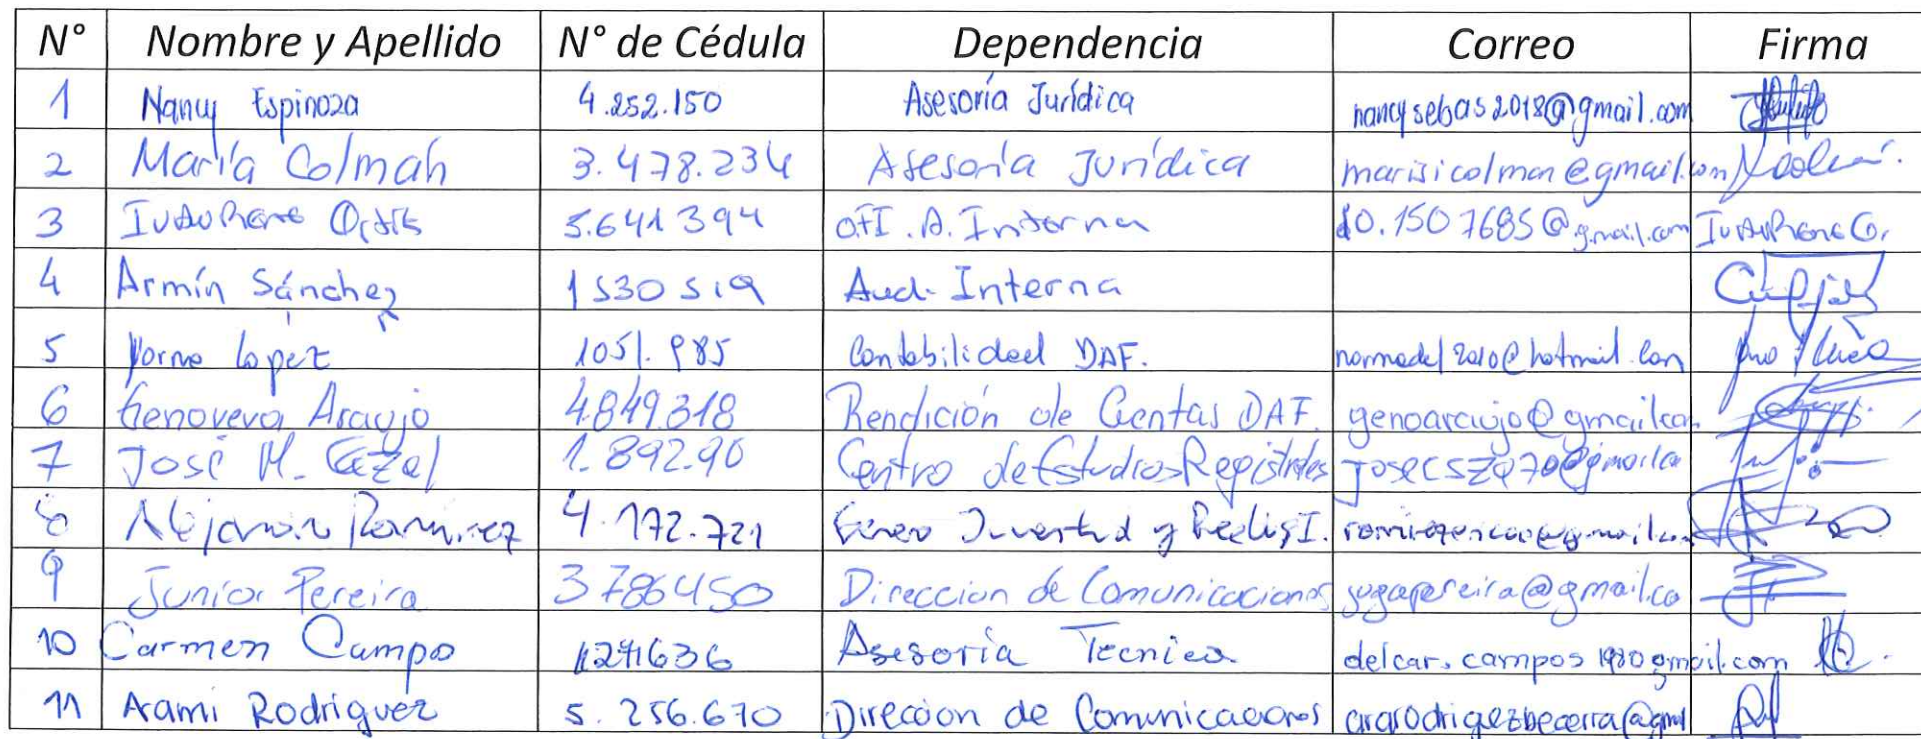 N° Nombre y Apellido N° de Cédula Dependencia Correo Firma
1 Nancy Espinoza 4.252.150 Asesoría Jurídica nancysebas2018@gmail.com
2 María Colmán 3.478.234 Asesoría Jurídica marisicolman@gmail.com
3 5.641394 OfI. A. Interna 10.1507685@gmail.com
4 Armín Sánchez 1530519 Aud. Interna
5 Norma López 1051.985 Contabilidad DAF. normadel2010@hotmail.com
6 Genoveva Araujo 4.849.318 Rendición de Cuentas DAF. genoaraujo@gmail.com
7 José M. Cazal 1.892.90 Centro de Estudios Registrales
8 Ramirez 4.172.721 y
9 Junior Pereira 3786450 Direccion de Comunicaciones jugapereira@gmail.co
10 Carmen Campo Asesoría Tecnica delcar.campos1980gmail.com
11 Arami Rodriguez 5.256.670 Direccion de Comunicaciones ararodrigezbecerra@gml